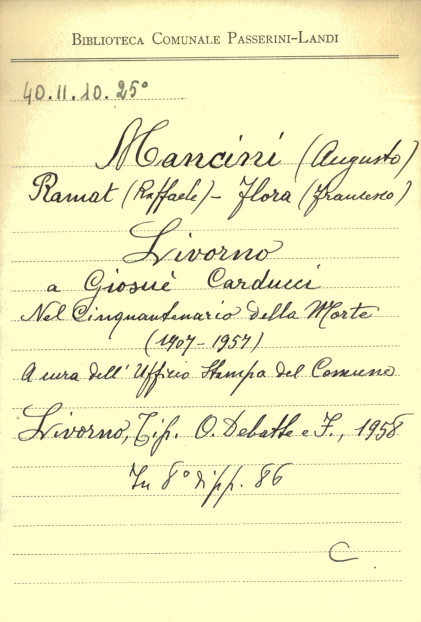 BIBLIOTECA COMUNALE PASSERINI-LANDI
40.II.10.25°
Mancini (Augusto)
Ramat (Raffaele) - Flora (Francesco)
Livorno
a Giosuè Carducci
Nel Cinquantenario della Morte
(1907-1957)
A cura dell' Ufficio Stampa del Comune
Livorno, Tip. O. Debatte e F., 1958
In 8° di pp. 86
C